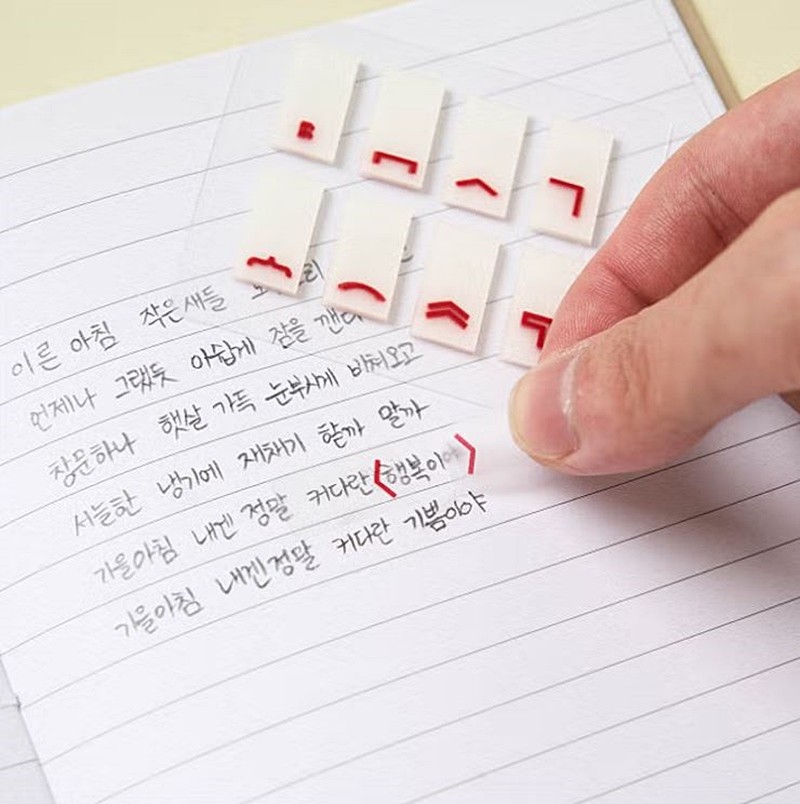 이른 아침 작은새들
언제나 그랬듯 아쉽게 잠을 깬다
창문하나 햇살 가득 눈부시게 비쳐오고
서늘한 냉기에 재채기 할까 말까
가을아침 내겐 정말 커다란〈행복이야〉
가을아침 내겐정말 커다란 기쁨이야